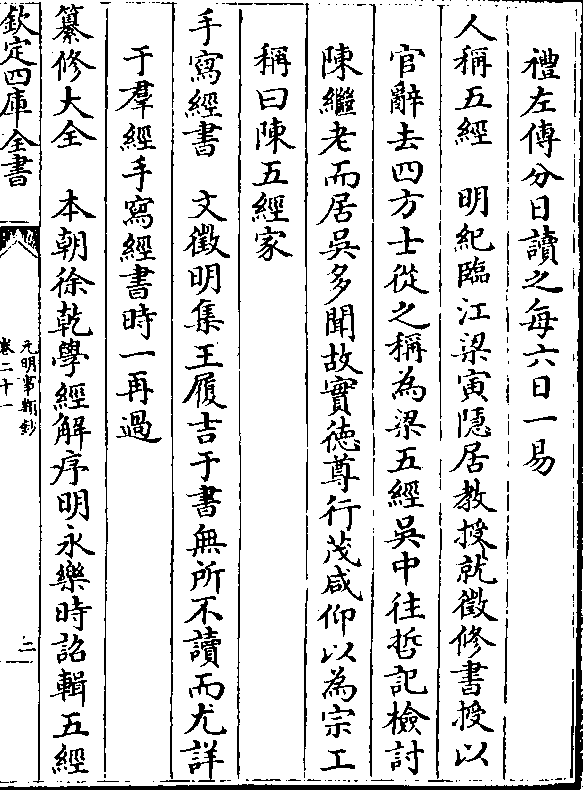 禮左傳分日讀之每六日一易
人稱五經　明紀臨江梁寅隱居教授就徵修書授以
官辭去四方士從之稱為梁五經吳中往哲記檢討
陳繼老而居吳多聞故實徳尊行茂咸仰以為宗工
稱曰陳五經家
手寫經書　文徵明集王履吉于書無所不讀而尤詳
于羣經手寫經書時一再過
纂修大全　本朝徐乾學經解序明永樂時詔輯五經
欽定四庫全書
元明事類鈔
卷二十一
二